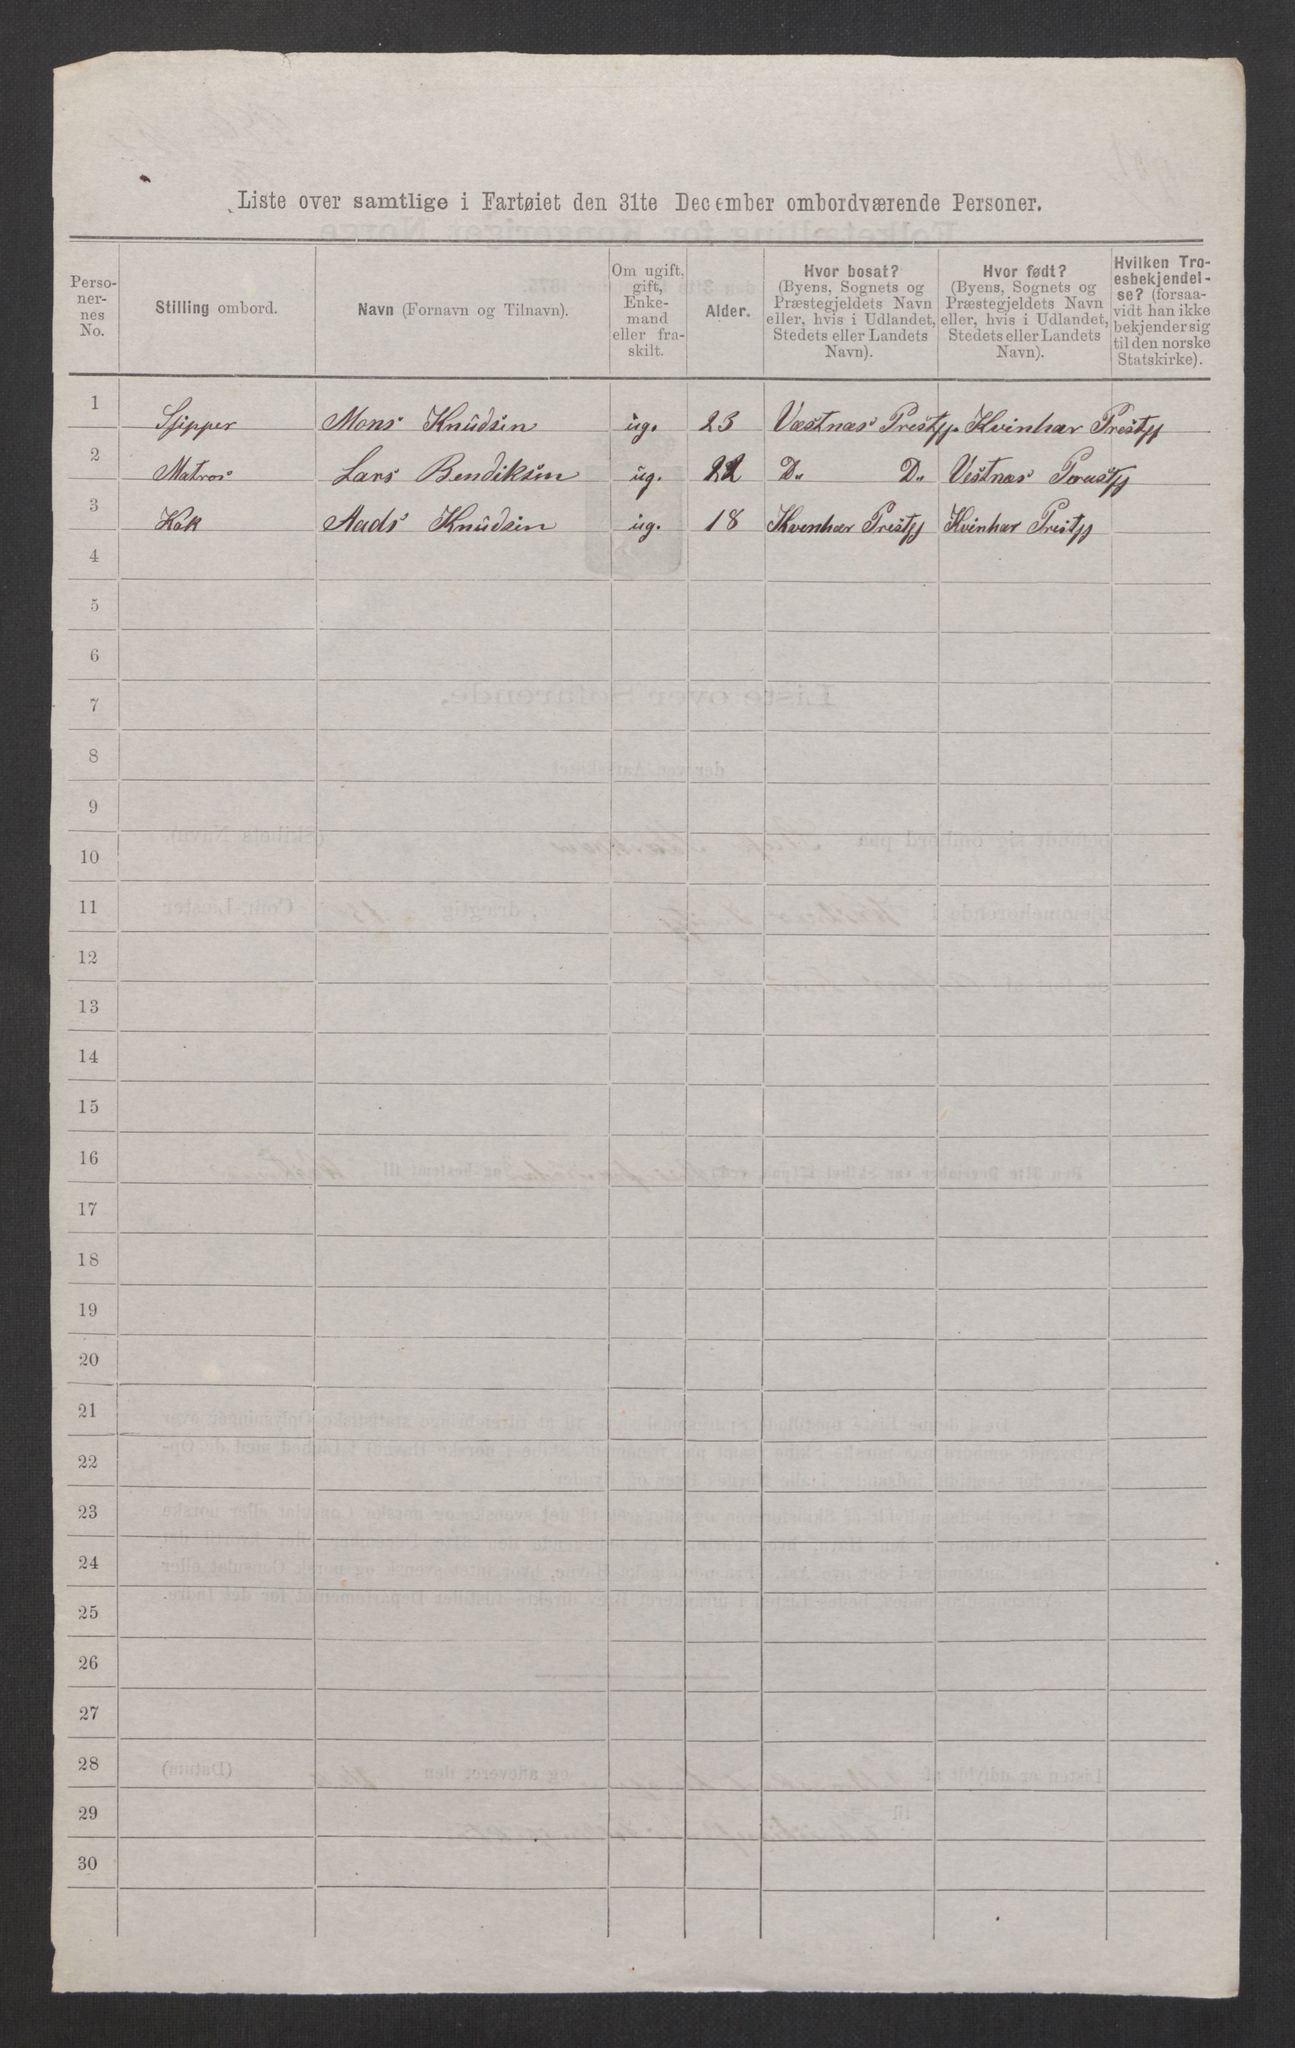 Liste over samtlige i Fartøiet den 31te December ombordværende Personer.
Personernes No. | Stilling ombord. | Navn (Fornavn og Tilnavn). | Om ugift, gift, Enkemand eller fraskilt. | Alder. | Hvor bosat? (Byens, Sognets og Præstegjeldets Navn eller, hvis i Udlandet, Stedets eller Landets Navn). | Hvor født? (Byens, Sognets og Præstegjeldets Navn eller, hvis i Udlandet, Stedets eller Landets Navn). | Hvilken Troesbekjendelse? (forsaavidt han ikke bekjender sig til den norske Statskirke).
1 Skipper Mons Knudsen ug. 23 Væstnæs Prestg. Kvinhær Prestg
2 Matros Lars Bendiksen ug. 22 D" D" Vestnæs
3 Kok Aads Knudsen ug. 18 Kvenhær Prestg Kvinhær Prestg
4
5
6
7
8
9
10
11
12
13
14
15
16
17
18
19
20
21
22
23
24
25
26
27
28
29
30